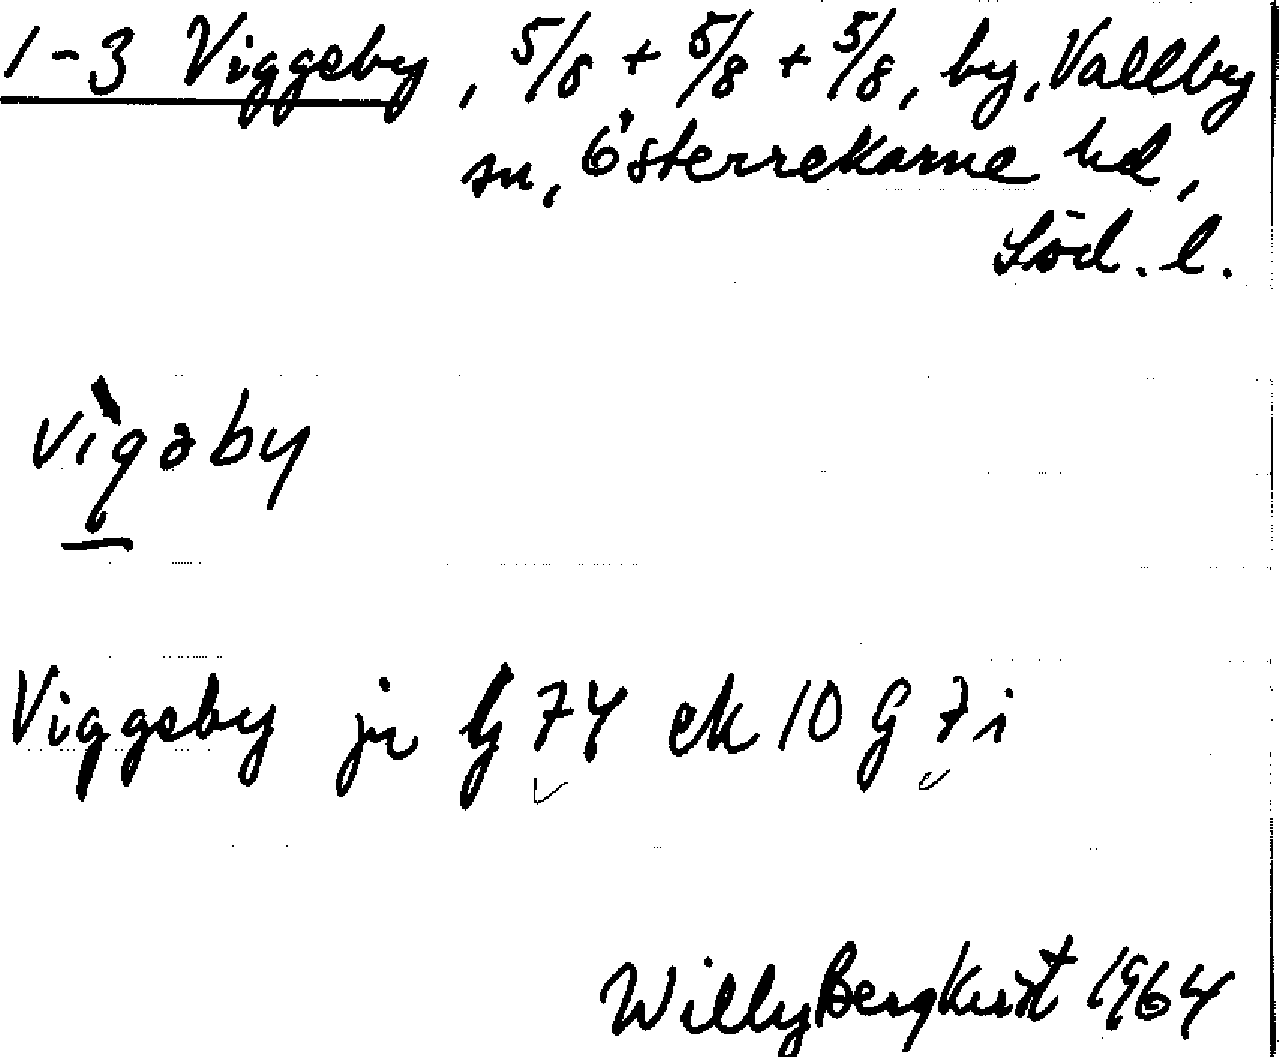 1-3 Viggeby, 5/8 + 5/8 + 5/8, by, Vallby
sn, Österrekarne hd,
Söd. l.
vìgəby
Viggeby jr G 74 ek 10 G 7i
Willy Bergkvist 1964